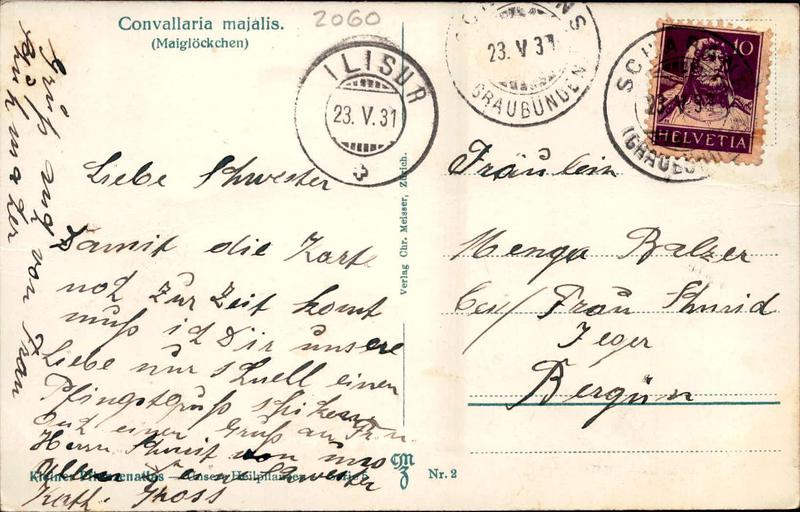 Convallaria majalis.
(Maiglöckchen)
2060
ILISUR
23. V. 31
23. V. 31
GRAUBÜNDEN
SCH
23. V. 31
(GRAUB
10
HELVETIA
Liebe Schwester
Damit die Karte
noch zur Zeit komt
muss ich Dir unsere
Liebe nur schnell einen
Pfingstgruss schicken
und einen Gruss an Fr. u.
Herrn Schmit von uns
Schwester
Kath. Gross
Gruss auch von Frau
Verlag Chr. Meisser, Zürich.
Fräulein
Menga Balzer
bei / Frau Schmid
Jeger
Bergün
Kleiner Pflanzenatlas — Unsere Heilpflanzen
CMZ
Nr. 2